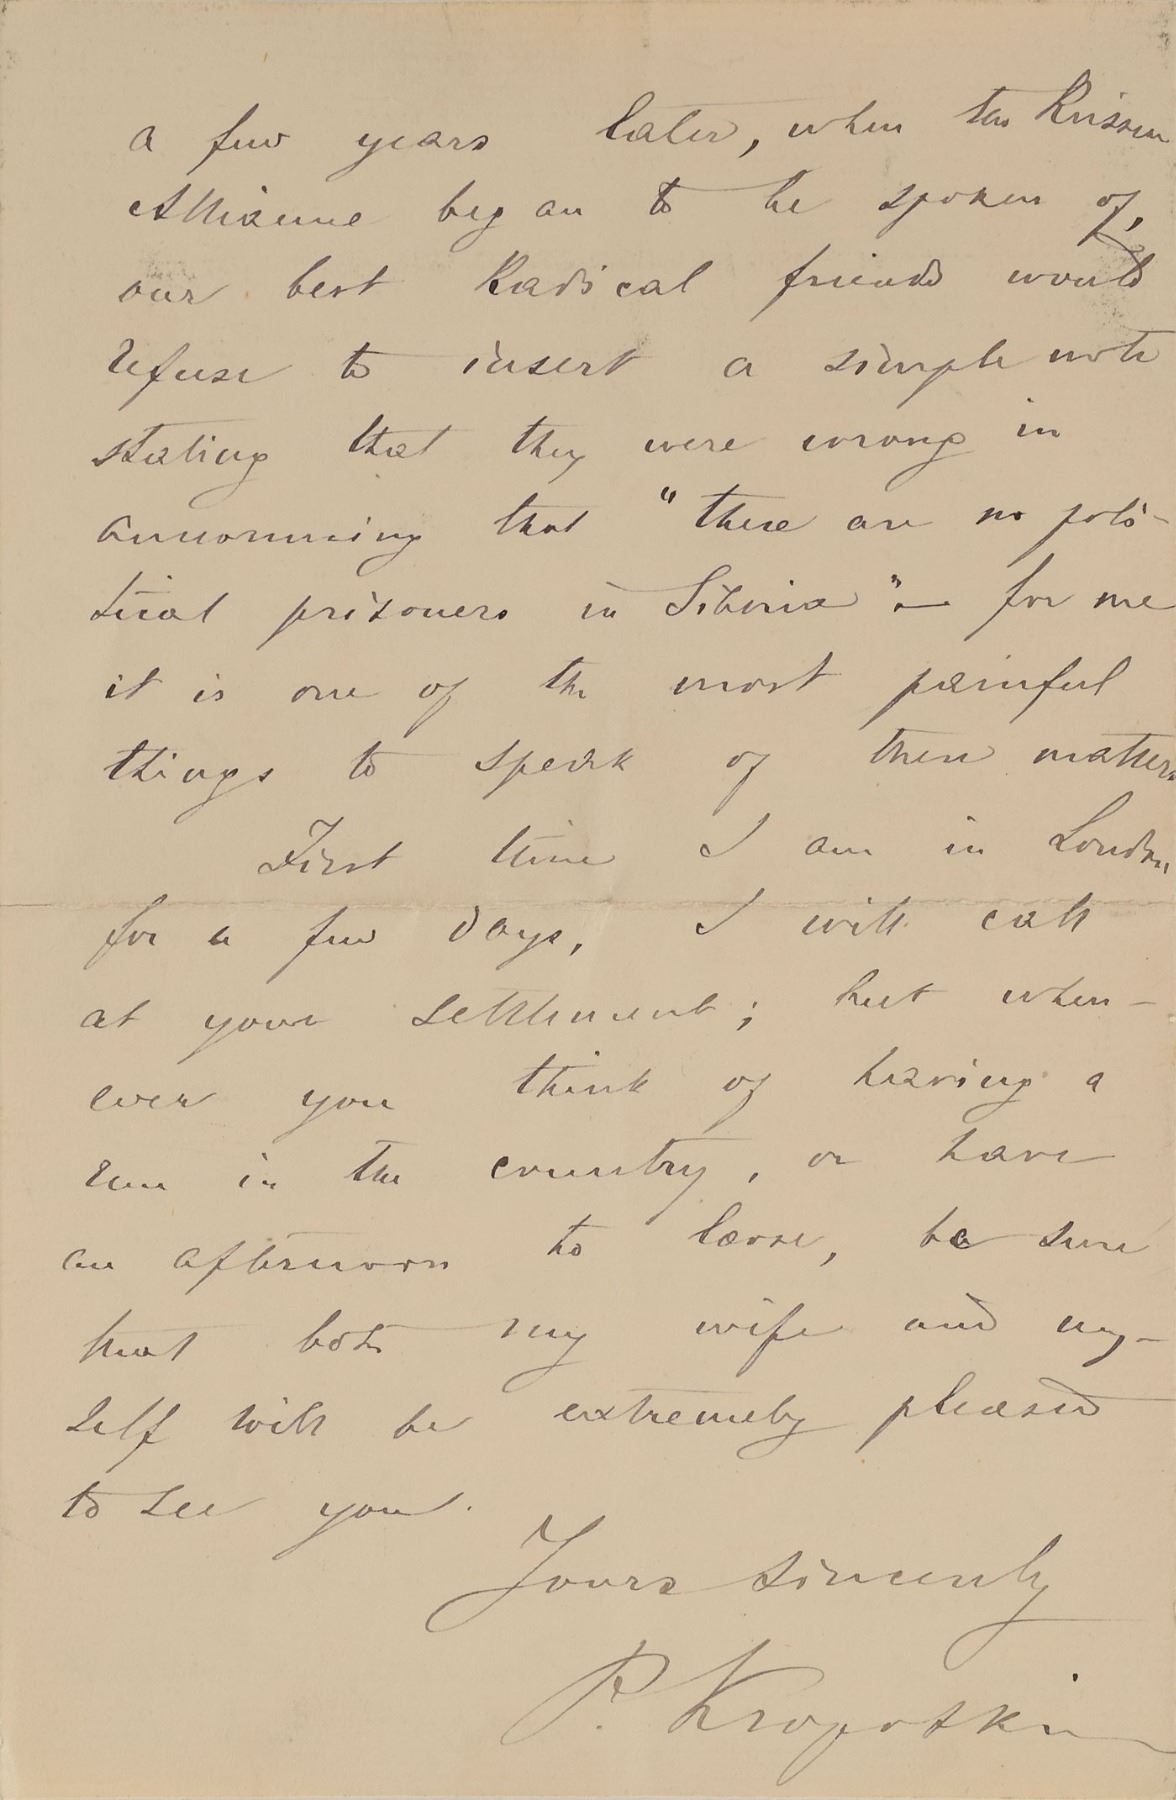 a few years later, when the Russian
Alliance began to be spoken of,
our best Radical friends would
refuse to insert a simple note
stating that they were wrong in
announcing that "there are no poli-
tical prisoners in Siberia" — for me
it is one of the most painful
things to speak of these matters.
First time I am in London
for a few days, I will call
at your settlement; but when-
ever you think of having a
run in the country, or have
an afternoon to loose, be sure
that both my wife and my-
self will be extremely pleased
to see you.
Yours sincerely
P. Kropotkin